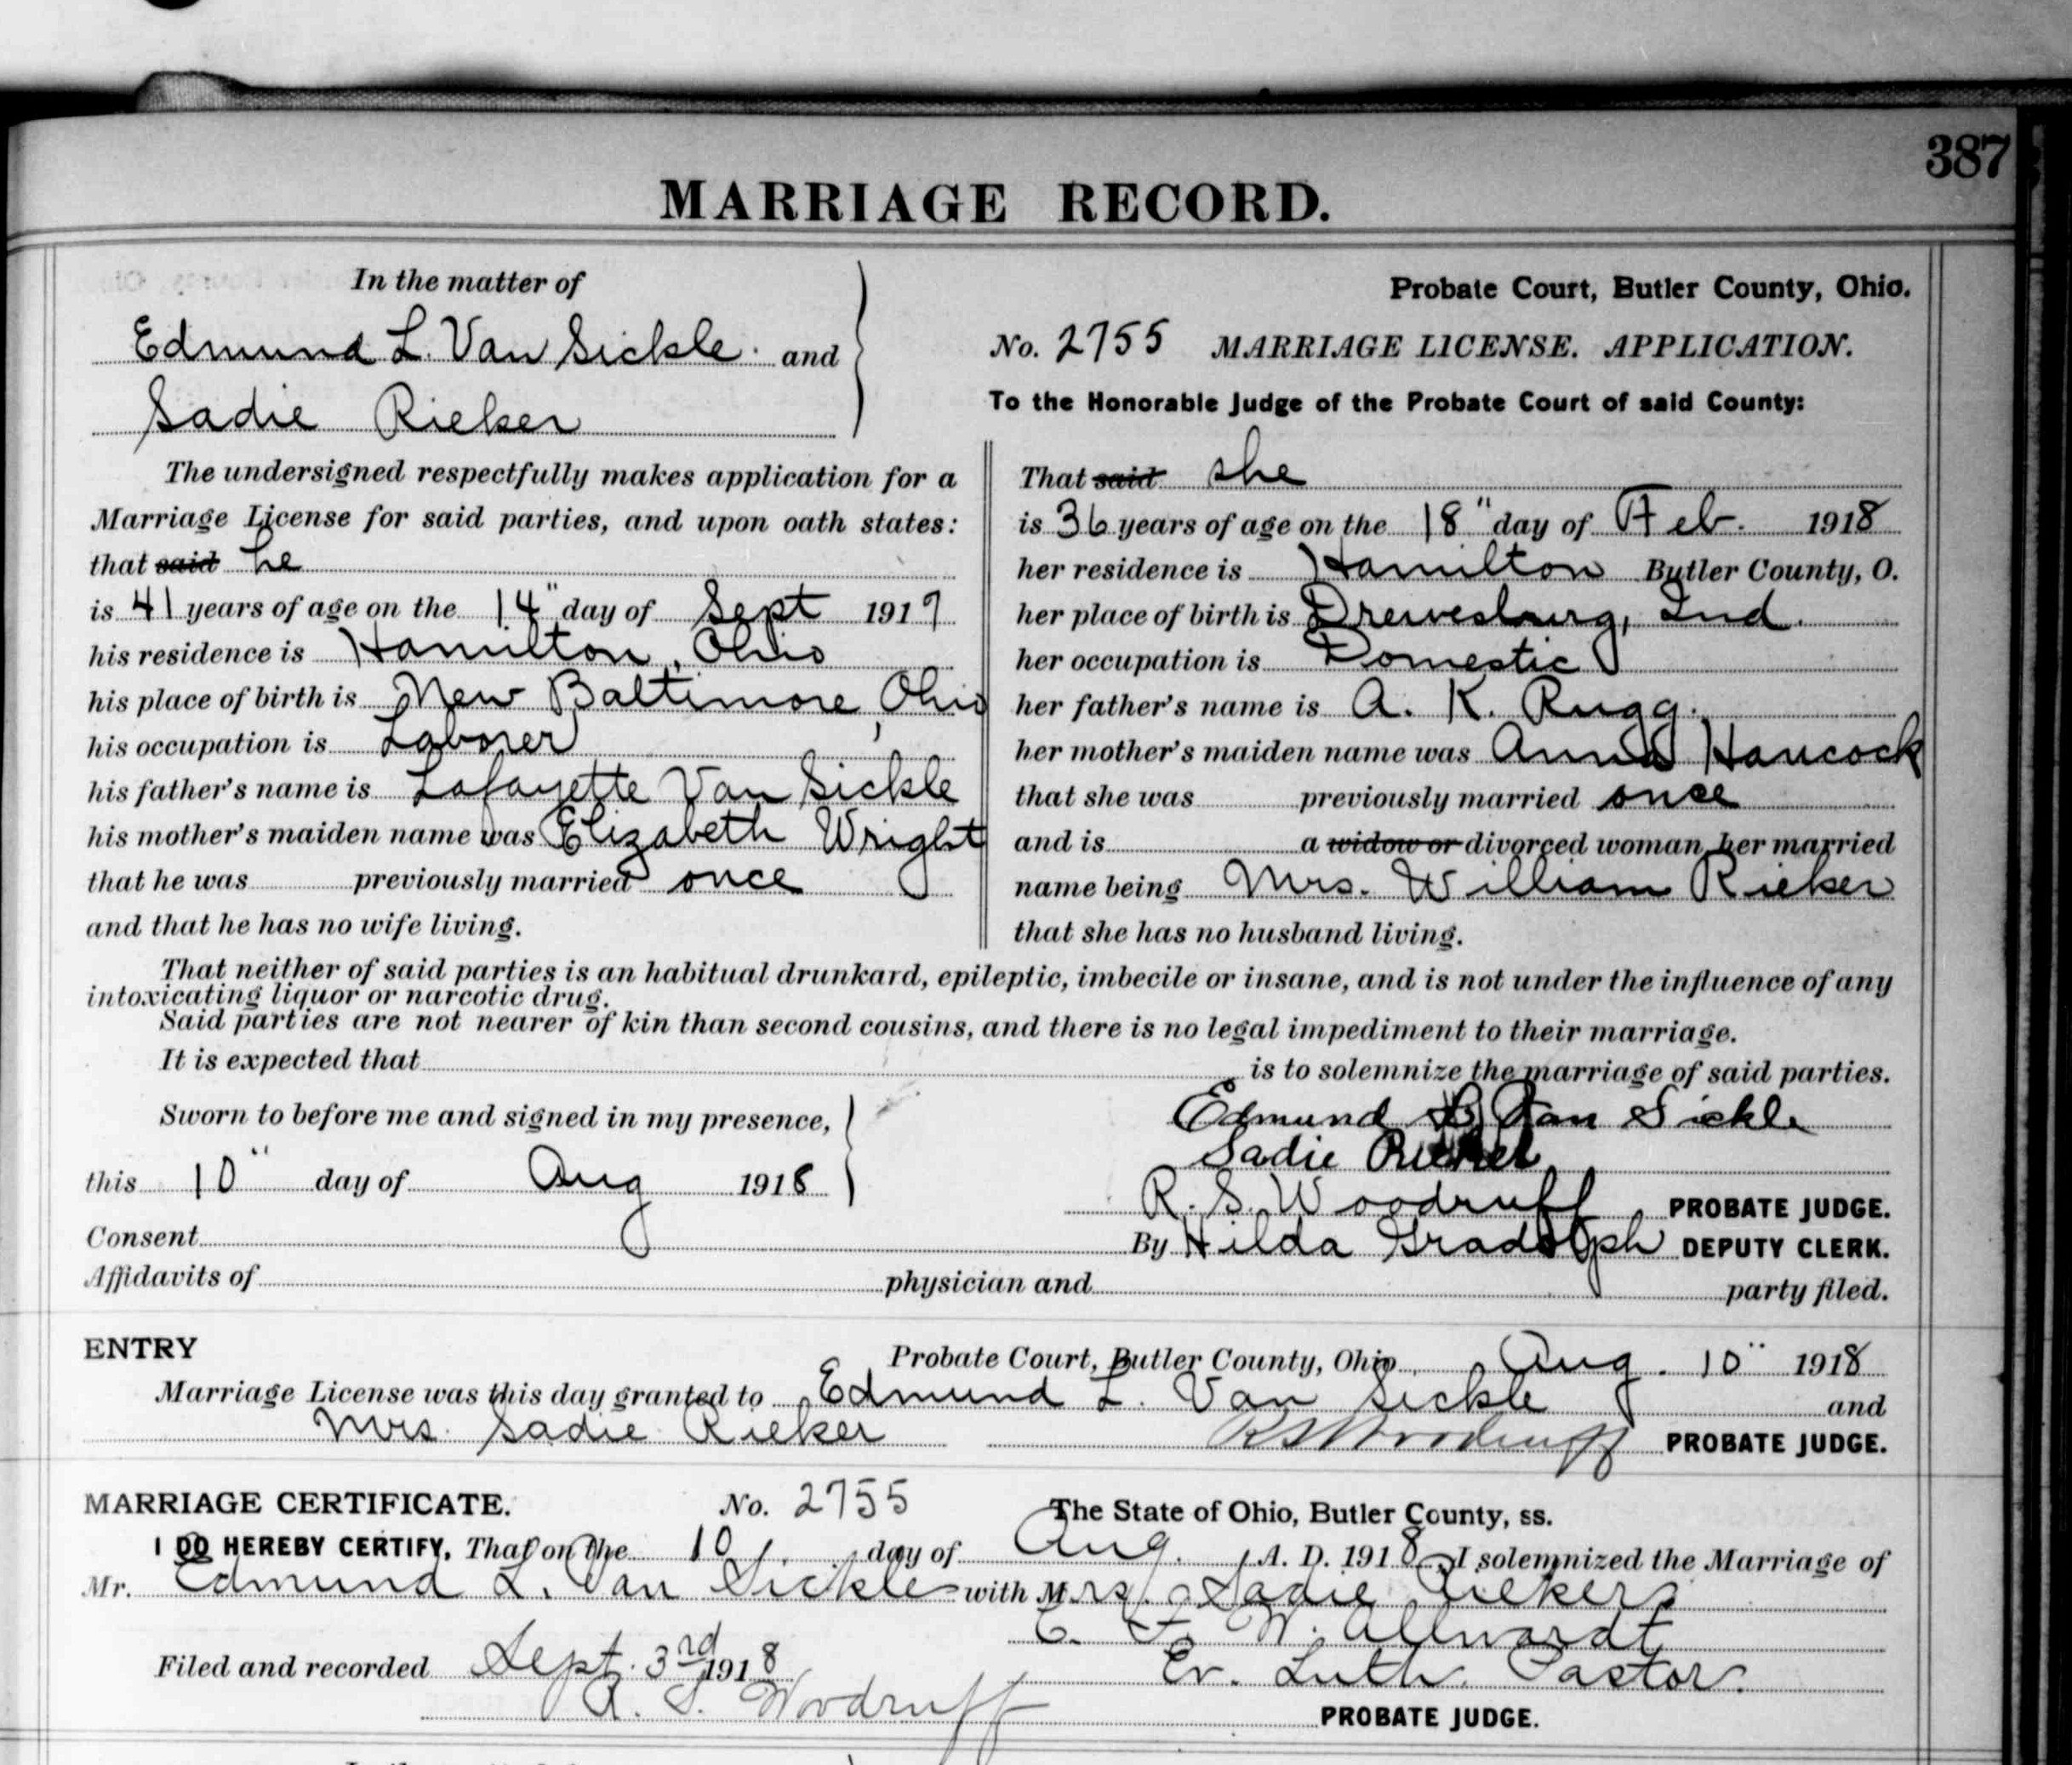 387
MARRIAGE RECORD.
In the matter of
Edmund L. Van Sickle and
Sadie Rieker
Probate Court, Butler County, Ohio.
No. 2755 MARRIAGE LICENSE. APPLICATION.
To the Honorable Judge of the Probate Court of said County:
The undersigned respectfully makes application for a
Marriage License for said parties, and upon oath states:
that said he
is 41 years of age on the 14" day of Sept 1917
his residence is Hamilton, Ohio
his place of birth is New Baltimore, Ohio
his occupation is Laborer
his father's name is Lafayette Van Sickle
his mother's maiden name was Elizabeth Wright
that he was previously married once
and that he has no wife living.
That said she
is 36 years of age on the 18" day of Feb. 1918
her residence is Hamilton Butler County, O.
her place of birth is Drewesburg, Ind.
her occupation is Domestic
her father's name is A. K. Rugg.
her mother's maiden name was Anna Hancock
that she was previously married once
and is a widow or divorced woman, her married
name being Mrs. William Rieker
that she has no husband living.
That neither of said parties is an habitual drunkard, epileptic, imbecile or insane, and is not under the influence of any
intoxicating liquor or narcotic drug.
Said parties are not nearer of kin than second cousins, and there is no legal impediment to their marriage.
It is expected that is to solemnize the marriage of said parties.
Sworn to before me and signed in my presence,
this 10" day of Aug 1918
Edmund L. Van Sickle
Sadie Rieker
R. S. Woodruff PROBATE JUDGE.
Consent By Hilda Gradolph DEPUTY CLERK.
Affidavits of physician and party filed.
ENTRY
Probate Court, Butler County, Ohio, Aug. 10" 1918
Marriage License was this day granted to Edmund L. Van Sickle and
Mrs. Sadie Rieker R S Woodruff PROBATE JUDGE.
MARRIAGE CERTIFICATE. No. 2755 The State of Ohio, Butler County, ss.
I DO HEREBY CERTIFY, That on the 10 day of Aug. A. D. 1918, I solemnized the Marriage of
Mr. Edmund L. Van Sickle with Mrs. Sadie Riekers
E. F. W. Allwardt
Filed and recorded Sept. 3rd 1918 Ev. Luth. Pastor.
R. S. Woodruff PROBATE JUDGE.